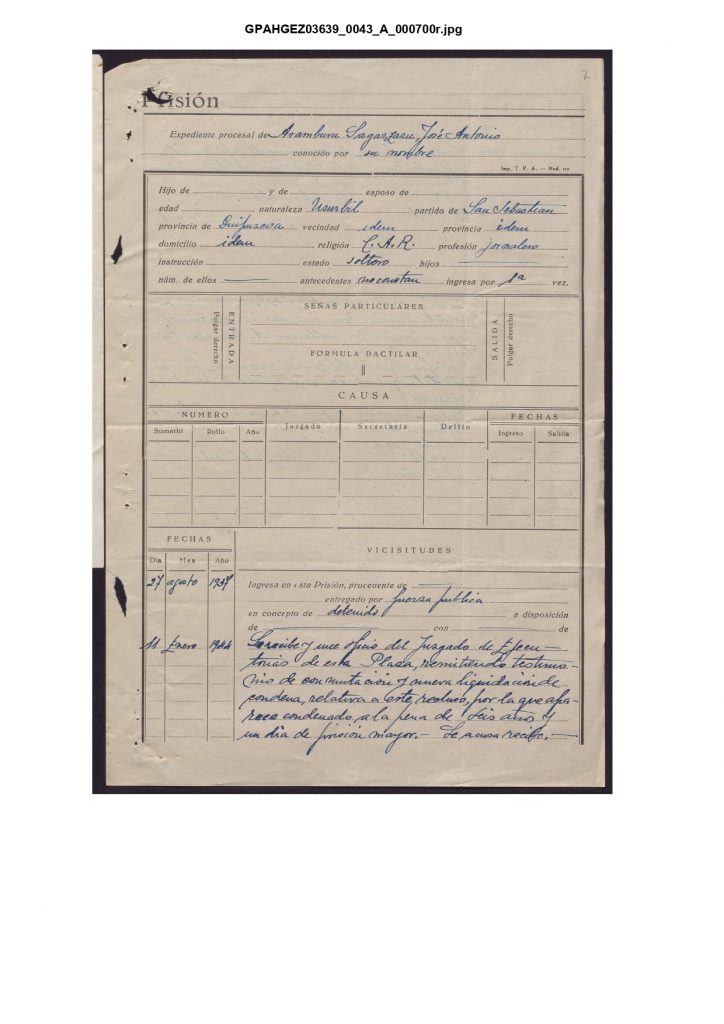 GPAHGEZ03639_0043_A_000700r.jpg
7
Prisión
Expediente procesal de Aramburu Sagarzazu, José Antonio
conocido por su nombre
Imp. T. P. A. — Mod.
Hijo de y de esposo de
edad naturaleza Usurbil partido de San Sebastian
provincia de Guipuzcoa vecindad idem provincia idem
domicilio idem religión C.A.R. profesión jornalero
instrucción estado soltero hijos —
núm. de ellos — antecedentes no constan ingresa por 1ª vez.
ENTRADA
Pulgar derecho
SEÑAS PARTICULARES
FORMULA DACTILAR
SALIDA
Pulgar derecho
CAUSA
NUMERO FECHAS
Sumario Rollo Año Juzgado Secretaría Delito Ingreso Salida
FECHAS VICISITUDES
Día Mes Año
27 agosto 1937 Ingresa en esta Prisión, procedente de —
entregado por fuerza publica
en concepto de detenido a disposición
de — con — de
11 Enero 1944 Se recibe y une oficio del Juzgado de Ejecu-
torias de esta Plaza, remitiendo testimo-
nio de conmutación y nueva liquidación de
condena, relativa a este recluso, por la que apa-
rece condenado a la pena de seis años y
un día de prisión mayor.— Se acusa recibo.—